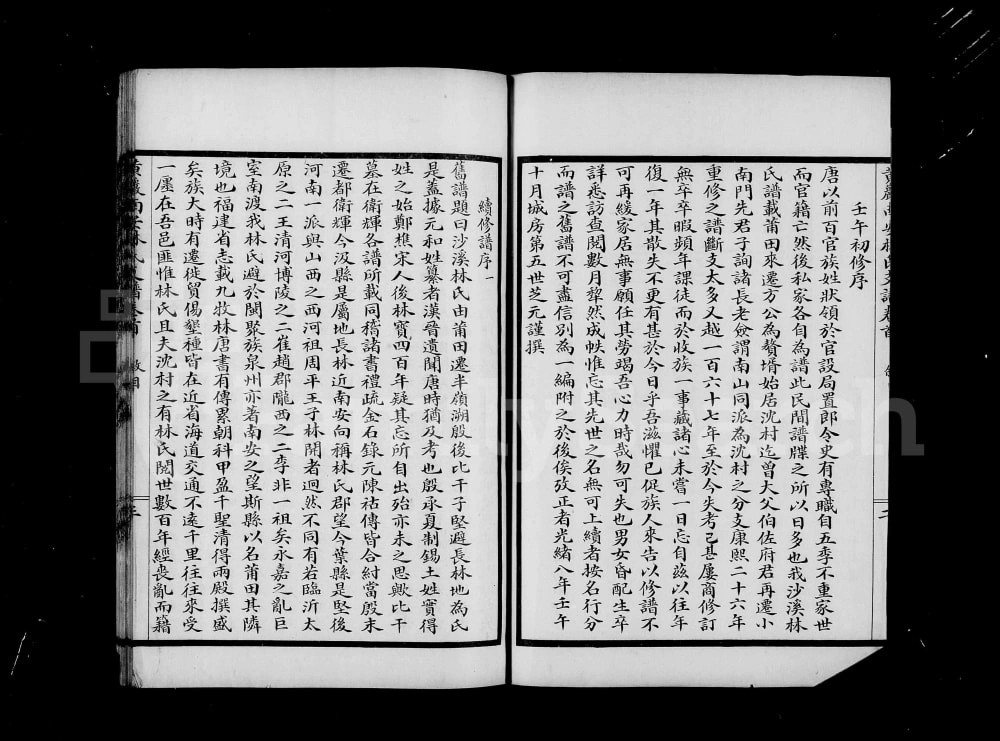 壬午初修序
唐以前百官族姓狀領於官設局置郎令史有專職自五季不重家世
而官籍亡然後私家各自為譜此民間譜牒之所以日多也我沙溪林
氏譜載莆田來遷方公為贅壻始居沈村迄曾大父伯佐府君再遷小
南門先君子詢諸長老僉謂南山同派為沈村之分支康熙二十六年
重修之譜斷支太多又越一百六十七年至於今失考已甚屢商修訂
無卒卒暇頻年課徒而於收族一事藏諸心未嘗一日忘自茲以往年
復一年其散失不更有甚於今日乎吾滋懼已促族人來告以修譜不
可再緩家居無事願任其勞竭吾心力時哉勿可失也男女昏配生卒
詳悉訪查閱數月犂然成帙惟忘其先世之名無可上續者按名行分
而譜之舊譜不可盡信別為一編附之於後俟攷正者光緒八年壬午
十月城房第五世芝元謹撰
續修譜序一
舊譜題曰沙溪林氏由莆田遷半嶺溯殷後比干子堅避長林地為氏
是蓋據元和姓纂者漢晉遺聞唐時猶及考也殷承夏制錫土姓實得
姓之始鄭樵宋人後林寶四百年疑其忘所自出殆亦未之思歟比干
墓在衛輝各譜所載同稽諸書禮疏金石錄元陳祜傳皆合紂當殷末
遷都衛輝今汲縣是屬地長林近南安向稱林氏郡望今葉縣是堅後
河南一派與山西之西河祖周平王子林開者迥然不同有若臨沂太
原之二王清河博陵之二崔趙郡隴西之二李非一祖矣永嘉之亂巨
室南渡我林氏避於閩聚族泉州亦著南安之望斯縣以名莆田其隣
境也福建省志載九牧林唐書有傳累朝科甲盈千聖清得兩殿撰盛
矣族大時有遷徙貿傷墾種皆在近省海道交通不遠千里往往來受
一廛在吾邑匪惟林氏且夫沈村之有林氏閱世數百年經喪亂而籍